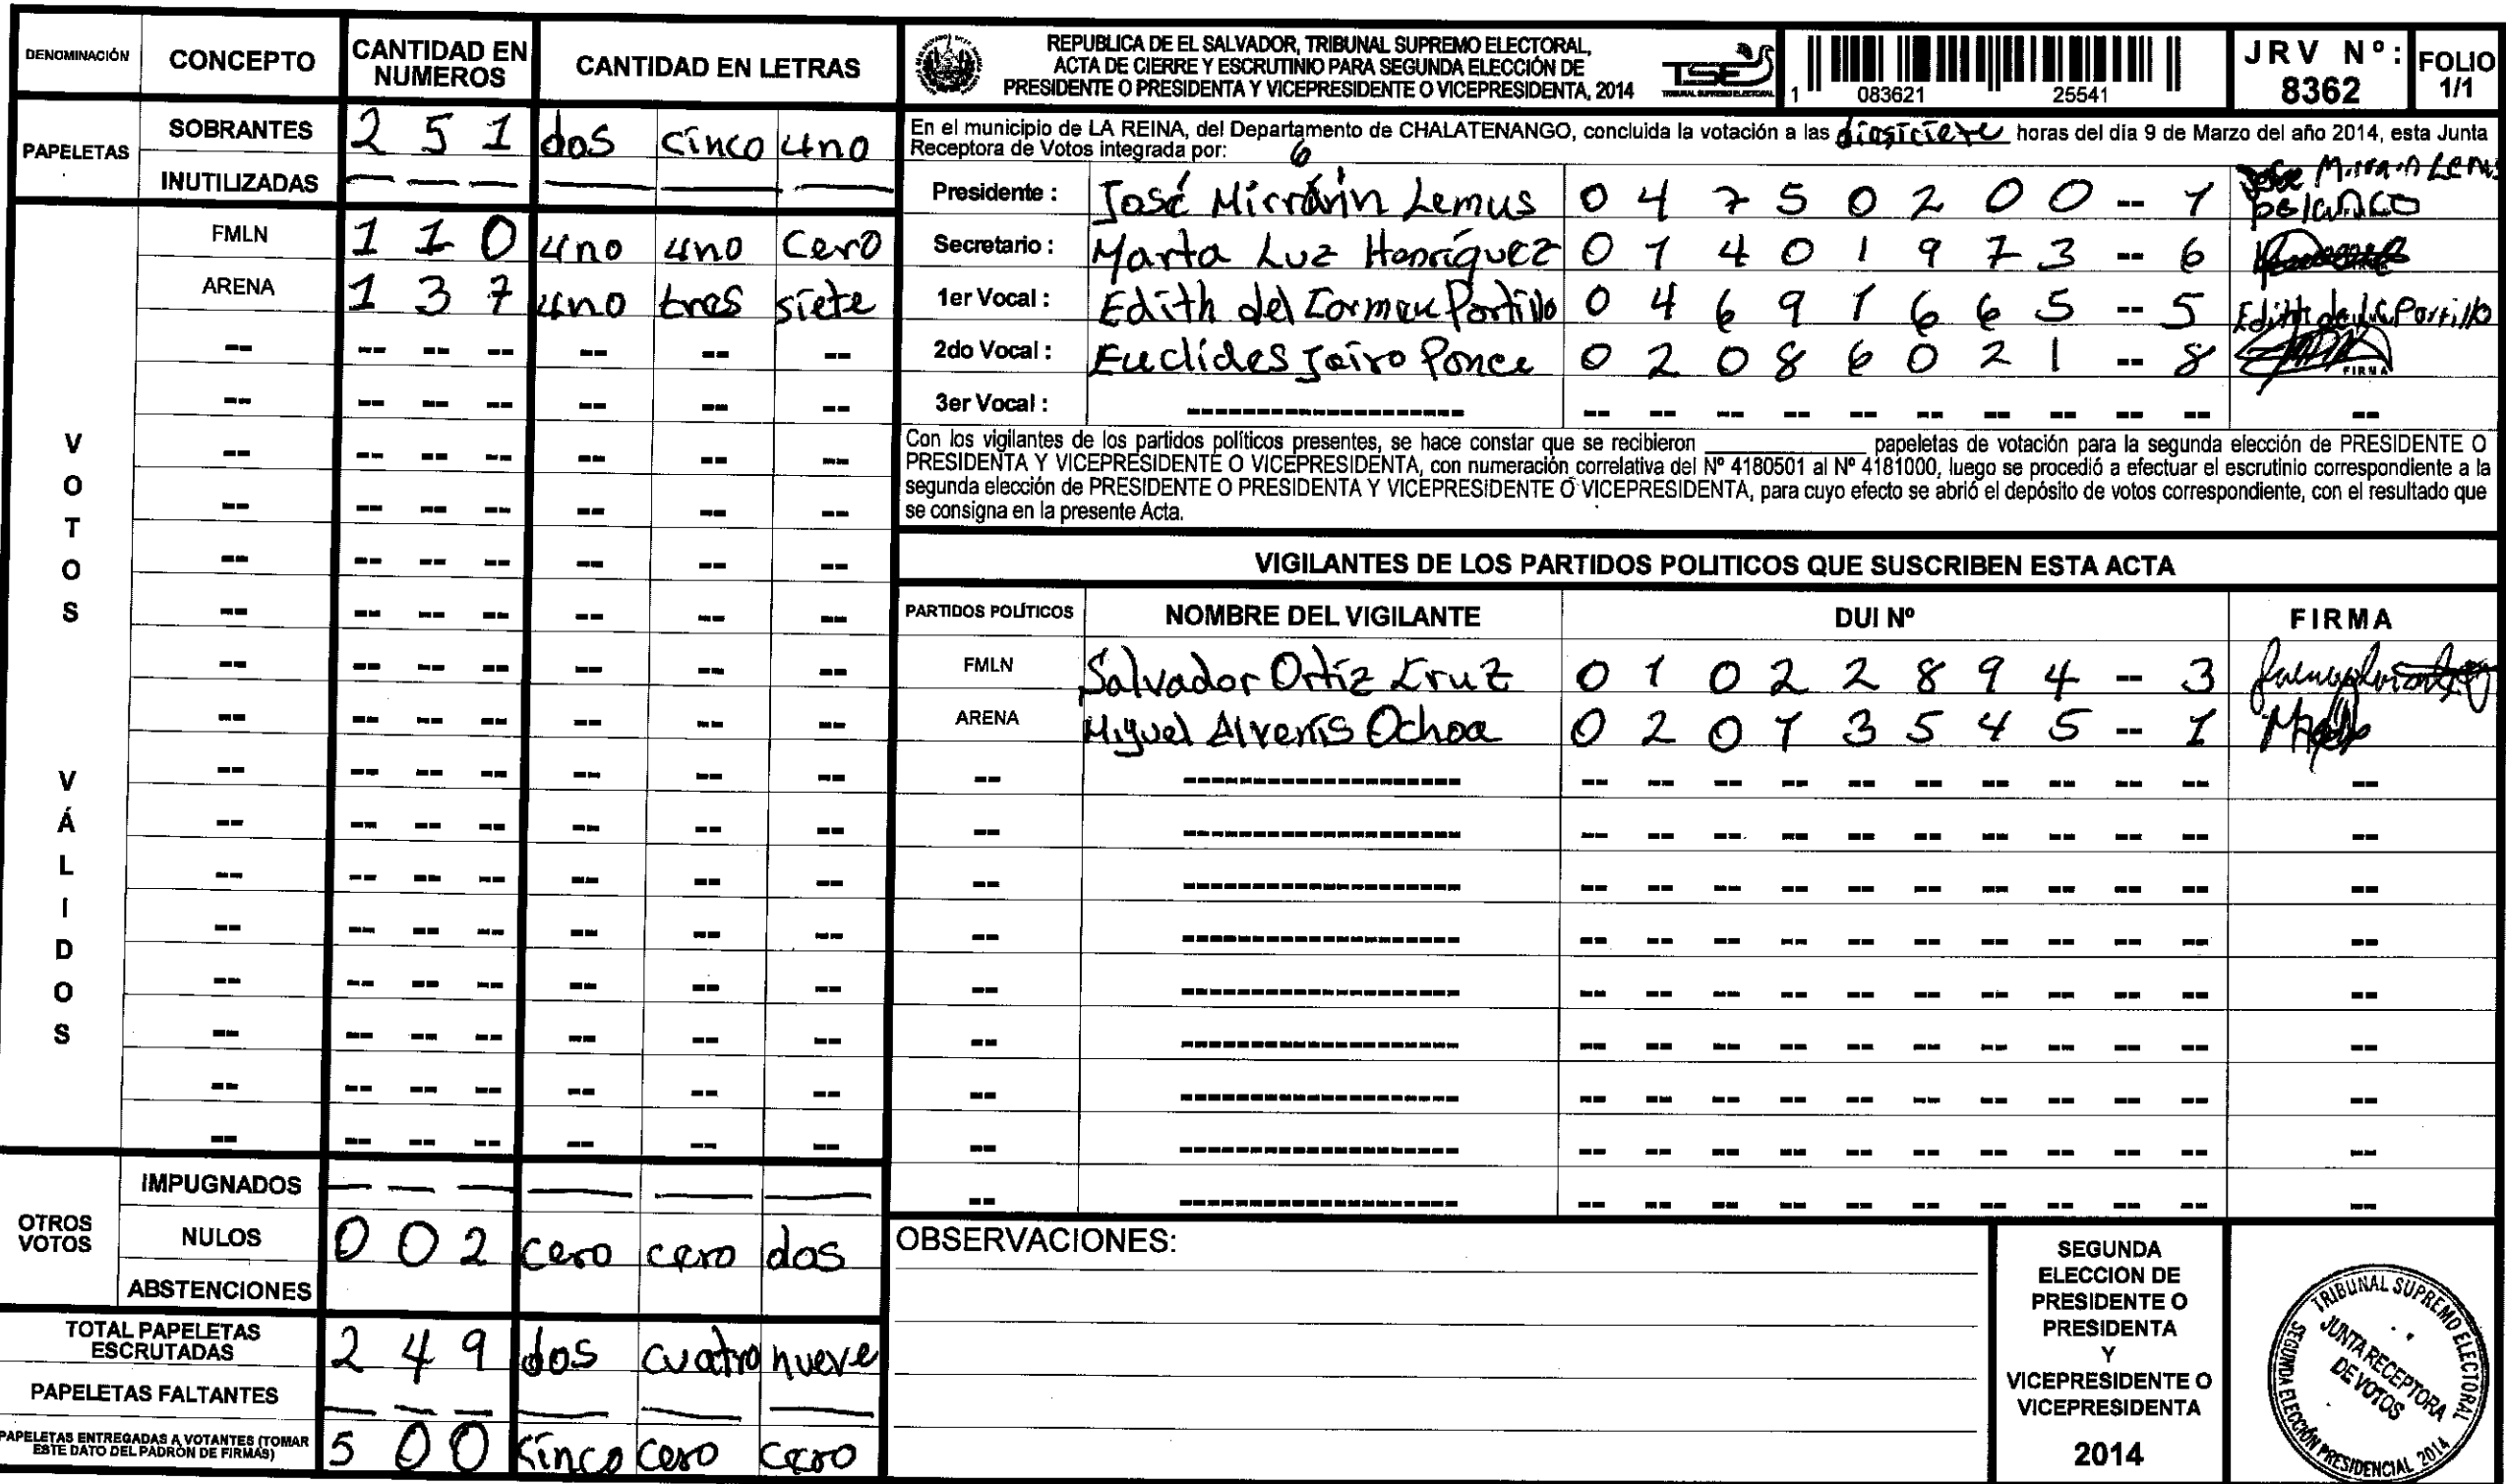 DENOMINACIÓN CONCEPTO CANTIDAD EN NUMEROS CANTIDAD EN LETRAS
PAPELETAS
SOBRANTES 2 5 1 dos cinco uno
INUTILIZADAS — — — — — —
VOTOS VÁLIDOS
FMLN 1 1 0 uno uno cero
ARENA 1 3 7 uno tres siete
OTROS VOTOS
IMPUGNADOS — — — — — —
NULOS 0 0 2 cero cero dos
ABSTENCIONES
TOTAL PAPELETAS ESCRUTADAS 2 4 9 dos cuatro nueve
PAPELETAS FALTANTES — — — — — —
PAPELETAS ENTREGADAS A VOTANTES (TOMAR ESTE DATO DEL PADRÓN DE FIRMAS) 5 0 0 cinco cero cero
REPUBLICA DE EL SALVADOR, TRIBUNAL SUPREMO ELECTORAL,
ACTA DE CIERRE Y ESCRUTINIO PARA SEGUNDA ELECCIÓN DE
PRESIDENTE O PRESIDENTA Y VICEPRESIDENTE O VICEPRESIDENTA, 2014
TSE
TRIBUNAL SUPREMO ELECTORAL
1 083621 25541
JRV Nº: 8362
FOLIO 1/1
En el municipio de LA REINA, del Departamento de CHALATENANGO, concluida la votación a las horas del día 9 de Marzo del año 2014, esta Junta
Receptora de Votos integrada por: 6
Presidente : José Mirrárin Lemus 0 4 7 5 0 2 0 0 -- 1
Secretario : Marta Luz Henríquez 0 1 4 0 1 9 7 3 -- 6
1er Vocal : Edith del Carmen Portillo 0 4 6 9 1 6 6 5 -- 5
2do Vocal : Euclides Jairo Ponce 0 2 0 8 6 0 2 1 -- 8 FIRMA
3er Vocal :
Con los vigilantes de los partidos políticos presentes, se hace constar que se recibieron ____________ papeletas de votación para la segunda elección de PRESIDENTE O
PRESIDENTA Y VICEPRESIDENTE O VICEPRESIDENTA, con numeración correlativa del Nº 4180501 al Nº 4181000, luego se procedió a efectuar el escrutinio correspondiente a la
segunda elección de PRESIDENTE O PRESIDENTA Y VICEPRESIDENTE O VICEPRESIDENTA, para cuyo efecto se abrió el depósito de votos correspondiente, con el resultado que
se consigna en la presente Acta.
VIGILANTES DE LOS PARTIDOS POLITICOS QUE SUSCRIBEN ESTA ACTA
PARTIDOS POLÍTICOS NOMBRE DEL VIGILANTE DUI Nº FIRMA
FMLN Salvador Ortiz Cruz 0 1 0 2 2 8 9 4 -- 3
ARENA Miguel Ochoa 0 2 0 1 3 5 4 5 -- 1
OBSERVACIONES:
SEGUNDA
ELECCION DE
PRESIDENTE O
PRESIDENTA
Y
VICEPRESIDENTE O
VICEPRESIDENTA
2014
TRIBUNAL SUPREMO ELECTORAL
JUNTA RECEPTORA
DE VOTOS
SEGUNDA ELECCIÓN PRESIDENCIAL 2014